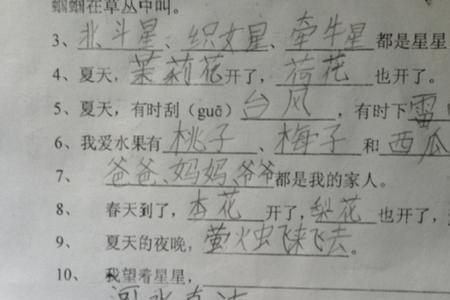 蝈蝈在草丛中叫。
3、北斗星、织女星、牵牛星都是星星
4、夏天，茉莉花开了，荷花也开了。
5、夏天，有时刮（guā）台风，有时下雷
6、我爱水果有桃子、梅子和西瓜
7、爸爸、妈妈、爷爷都是我的家人。
8、春天到了，杏花开了，梨花也开了，
9、夏天的夜晚，萤火虫飞来飞去。
10、我望着星星，